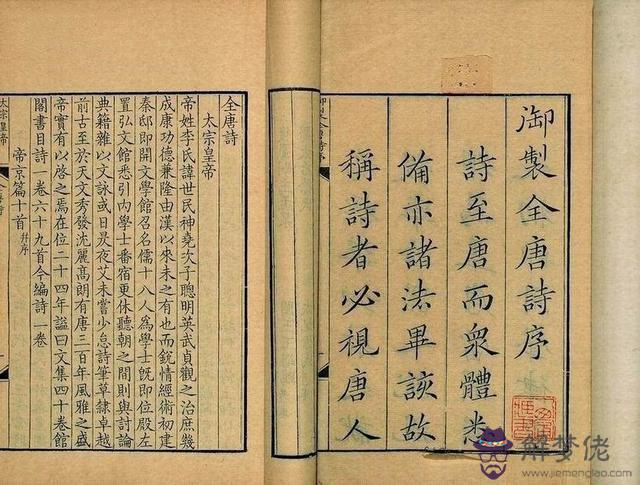 御製全唐詩序
詩至唐而衆體悉
備亦諸法畢該故
稱詩者必視唐人
全唐詩
太宗皇帝
帝姓李氏諱世民神堯次子聰明英武貞觀之治庶幾
成康功德兼隆由漢以來未之有也而銳情經術初建
秦邸即開文學館召名儒十八人爲學士旣即位殿左
置弘文館悉引內學士番宿更休聽朝之間則與討論
典籍雜以文詠或日昃夜艾未嘗少怠詩筆草隸卓越
前古至於天文秀發沈麗高朗有唐三百年風雅之盛
帝實有以啓之焉在位二十四年諡曰文集四十卷館
閣書目詩一卷六十九首今編詩一卷
帝京篇十首 并序
太宗皇帝
解梦佬
www.jiemenglao.com